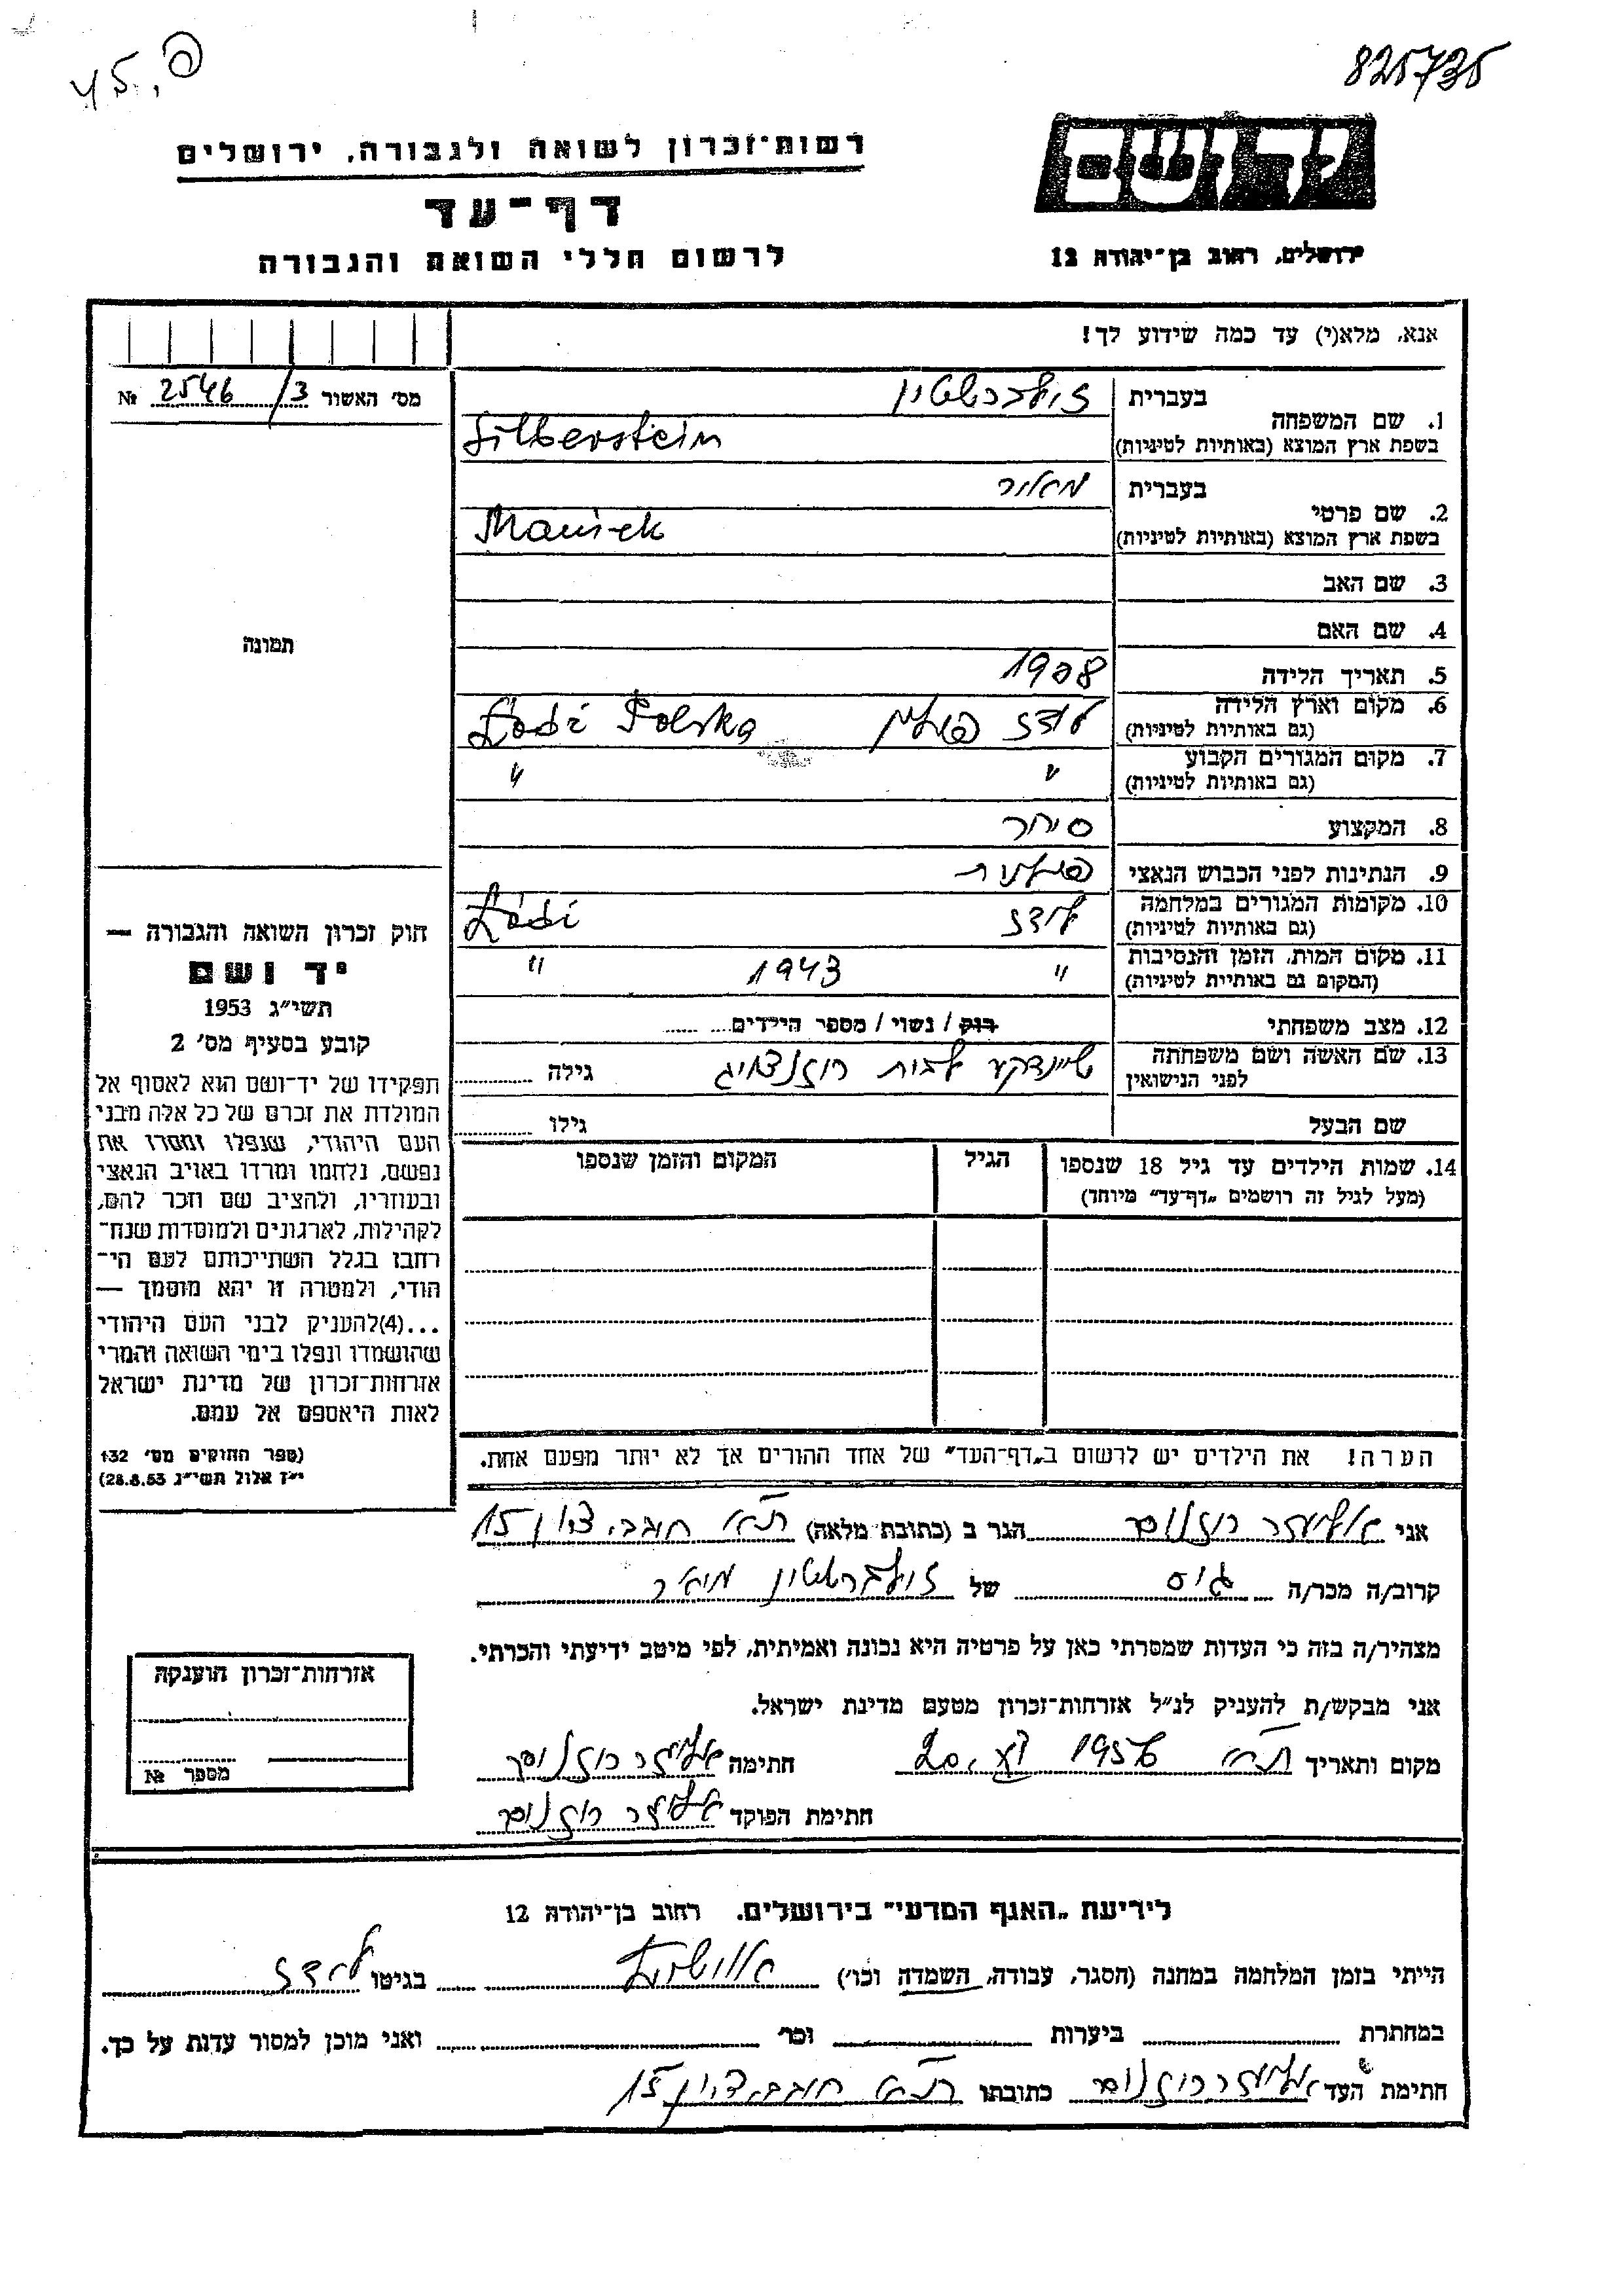 825735
רשות־זכרון לשואה ולגבורה, ירושלים
דף־עד
לרשום חללי השואה והגבורה
יד ושם
ירושלים, רחוב בן־יהודה 12
אנא, מלא(י) עד כמה שידוע לך!
מס׳ האשור 3/ 2546 №
תמונה
1. שם המשפחה
בעברית זילברשטיין
בשפת ארץ המוצא (באותיות לטיניות) Silberstein
2. שם פרטי
בעברית מאיר
בשפת ארץ המוצא (באותיות לטיניות)
3. שם האב
4. שם האם
5. תאריך הלידה 1908
6. מקום וארץ הלידה
(גם באותיות לטיניות) לודז פולין Łódź Polska
7. מקום המגורים הקבוע
(גם באותיות לטיניות) " "
8. המקצוע סוחר
9. הנתינות לפני הכבוש הנאצי פולנית
10. מקומות המגורים במלחמה
(גם באותיות לטיניות) לודז Łódź
11. מקום המות, הזמן והנסיבות
(המקום גם באותיות לטיניות) " 1943 "
12. מצב משפחתי רוק / נשוי / מספר הילדים
13. שם האשה ושם משפחתה
לפני הנישואין שיינדקע לבית רוזנצויג גילה
שם הבעל גילו
14. שמות הילדים עד גיל 18 שנספו
(מעל לגיל זה רושמים „דף־עד״ מיוחד)
הגיל
המקום והזמן שנספו
הערה! את הילדים יש לרשום ב„דף־העד״ של אחד ההורים אך לא יותר מפעם אחת.
חוק זכרון השואה והגבורה —
יד ושם
תשי״ג 1953
קובע בסעיף מס׳ 2
תפקידו של יד־ושם הוא לאסוף אל
המולדת את זכרם של כל אלה מבני
העם היהודי, שנפלו ומסרו את
נפשם, נלחמו ומרדו באויב הנאצי
ובעוזריו, ולהציב שם וזכר להם,
לקהילות, לארגונים ולמוסדות שנח־
רחבו בגלל השתייכותם לעם הי־
הודי, ולמטרה זו יהא מוסמך —
...(4)להעניק לבני העם היהודי
שהושמדו ונפלו בימי השואה והמרי
אזרחות־זכרון של מדינת ישראל
לאות היאספם אל עמם.
(ספר החוקים מס׳ 132
י״ז אלול תשי״ג 28.8.53)
אני אליעזר רוזנבוים הגר ב (כתובת מלאה) ת״א חובבי ציון 15
קרוב/ה מכר/ה גיס של זילברשטיין מאיר
מצהיר/ה בזה כי העדות שמסרתי כאן על פרטיה היא נכונה ואמיתית, לפי מיטב ידיעתי והכרתי.
אני מבקש/ת להעניק לנ״ל אזרחות־זכרון מטעם מדינת ישראל.
מקום ותאריך ת״א 1956 חתימה אליעזר רוזנבוים
חתימת הפוקד אליעזר רוזנבוים
אזרחות־זכרון הוענקה
מספר №
לידיעת „האגף המדעי״ בירושלים, רחוב בן־יהודה 12
הייתי בזמן המלחמה במחנה (הסגר, עבודה, השמדה וכו׳) אושוויץ בגיטו לודז
במחתרת ביערות וכו׳ ואני מוכן למסור עדות על כך.
חתימת העד אליעזר רוזנבוים כתובתו ת״א חובבי ציון 15